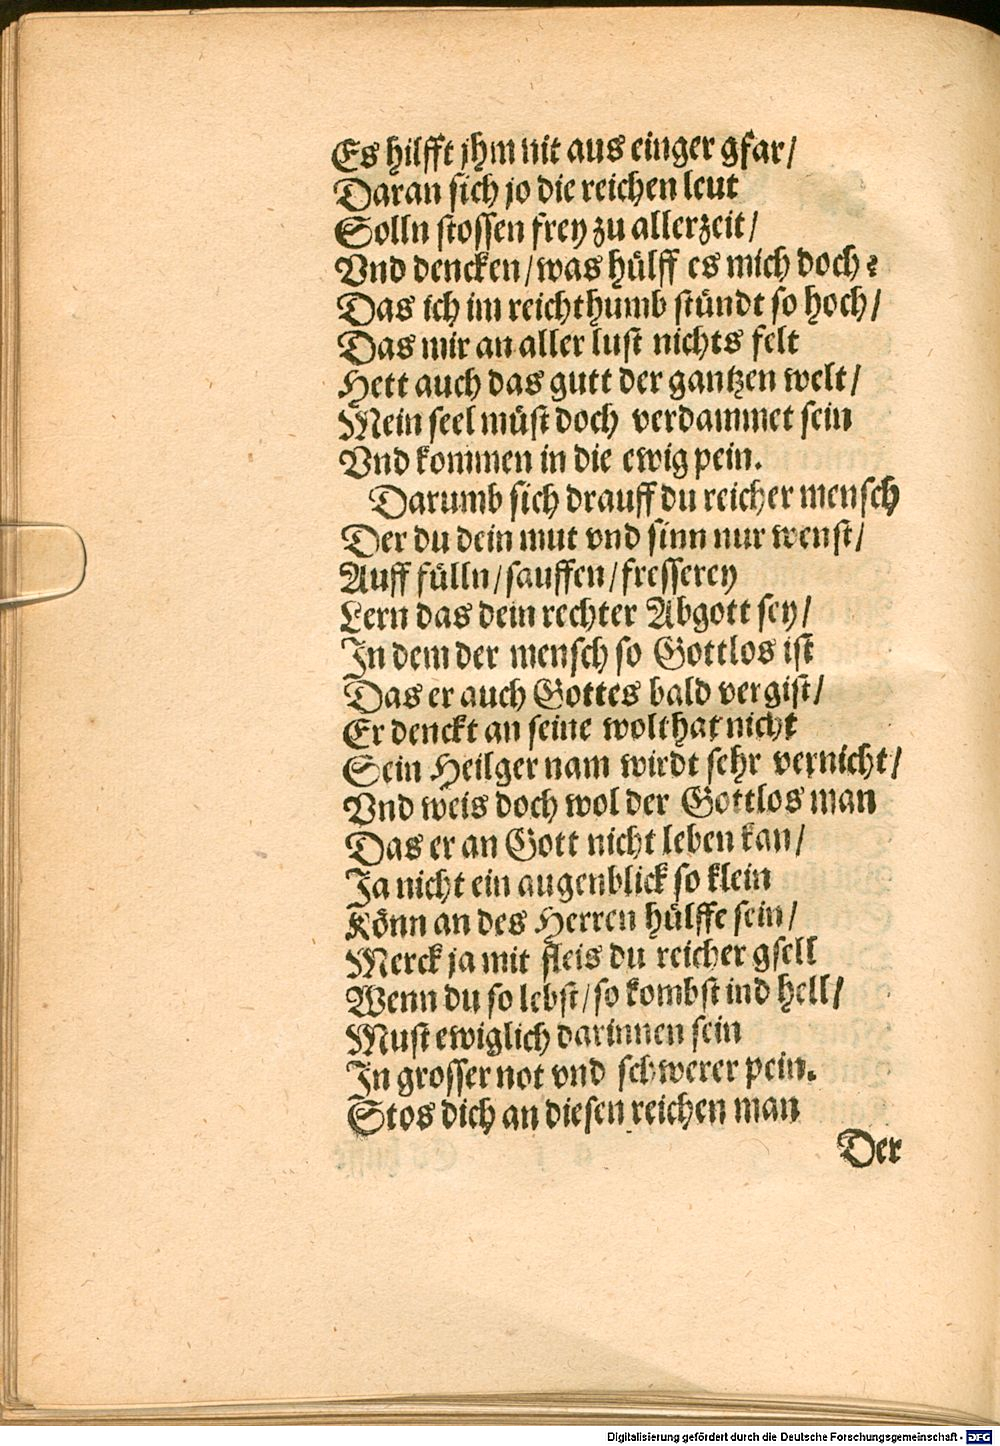 Es hilfft jhm nit aus einger gfar/
Daran sich jo die reichen leut
Solln stossen frey zu allerzeit/
Vnd dencken/was hülff es mich doch?
Das ich im reichthumb stündt so hoch/
Das mir an aller lust nichts felt
Hett auch das gutt der gantzen welt/
Mein seel müst doch verdammet sein
Vnd kommen in die ewig pein.
Darumb sich drauff du reicher mensch
Der du dein mut vnd sinn nur wenst/
Auff fülln/sauffen/fresserey
Lern das dein rechter Abgott sey/
In dem der mensch so Gottlos ist
Das er auch Gottes bald vergist/
Er denckt an seine wolthat nicht
Sein Heilger nam wirdt sehr vernicht/
Vnd weis doch wol der Gottlos man
Das er an Gott nicht leben kan/
Ja nicht ein augenblick so klein
Könn an des Herren hülffe sein/
Merck ja mit fleis du reicher gsell
Wenn du so lebst/so kombst ind hell/
Must ewiglich darinnen sein
In grosser not vnd schwerer pein.
Stos dich an diesen reichen man
Der
Digitalisierung gefördert durch die Deutsche Forschungsgemeinschaft - DFG